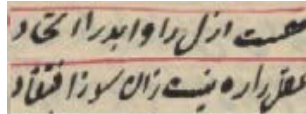 هست ازل را و ابد را اتحاد
عقل را ره نیست زان سو ز افتقاد